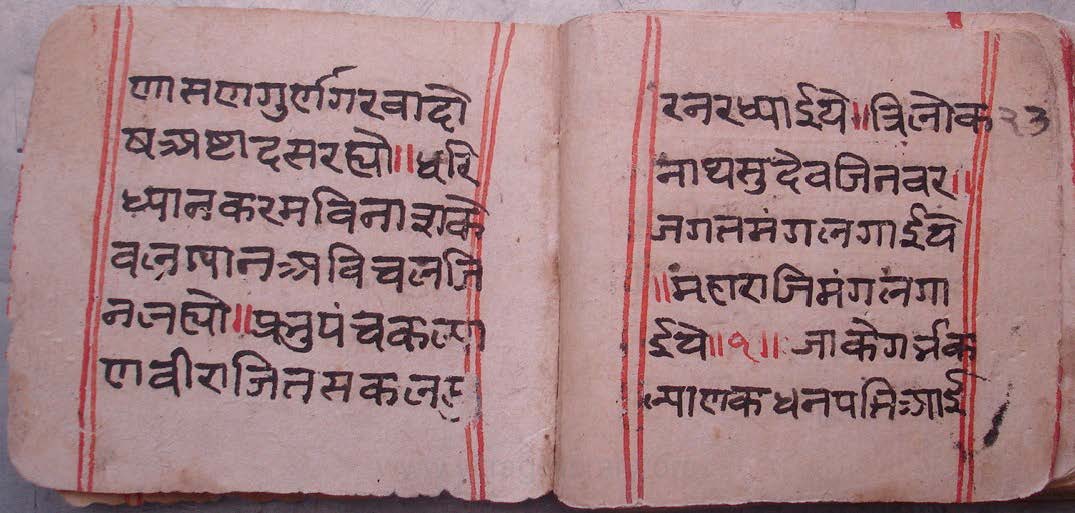 णासणगुर्णगरवादो
षअष्टादसरह्यो॥धरि
ध्यानकरमविनाशके
वलग्यानअविचलजि
नलह्यो॥प्रनुपंचकल्या
णवीराजितसकलसु
रनरध्याईये॥त्रिलोक २३
नाथसुदेवजिनवर॥
जगतमंगलगाईये
॥महाराजिमंगलगा
ईये॥१॥जाकेगर्भक
ल्याणकधनपतिआई